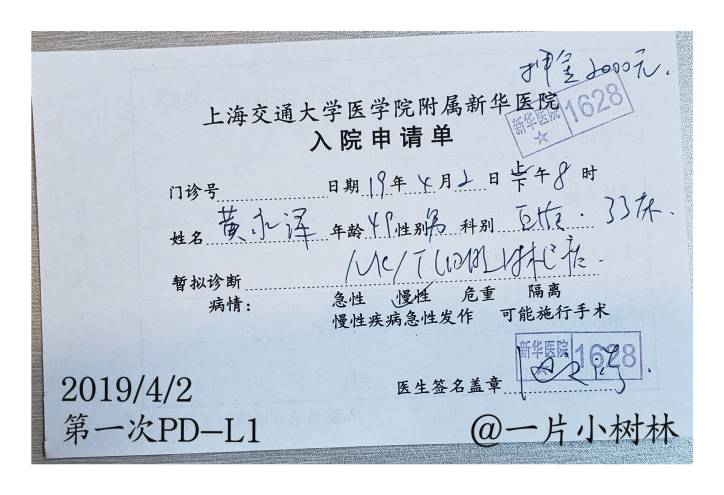 押金2000元.
上海交通大学医学院附属新华医院
新华医院 1628
入院申请单
门诊号 日期 19年 4月2日 上下午8时
姓名 黄永泽 年龄49性别男 科别 33床.
暂拟诊断 NK/T
病情： 急性 慢性 危重 隔离
慢性疾病急性发作 可能施行手术
新华医院 1628
医生签名盖章
2019/4/2
第一次PD-L1
@一片小树林